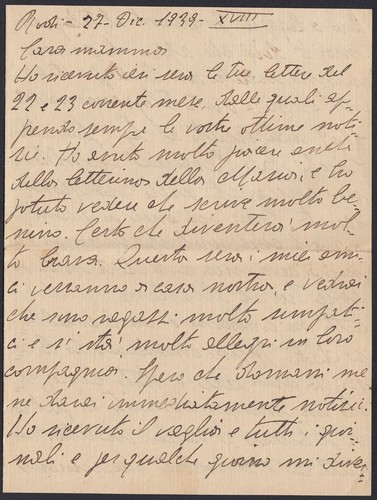 Rodi - 27 - Dic. 1939 - XVIII
Cara mamma
Ho ricevuto ieri sera le tue lettere del
22 e 23 corrente mese, dalle quali ap-
prendo sempre le vostre ottime noti-
zie. Ho avuto molto piacere anche
della letterina della Maria, e ho
potuto vedere che scrive molto be-
nino. Certo che diventerà mol-
to brava. Questa sera i miei ami-
ci verranno a casa nostra, e vedrai
che sono ragazzi molto simpati-
ci e si stà molto allegri in loro
compagnia. Spero che domani me
ne darai immediatamente notizie.
Ho ricevuto il vaglia e tutti i gior-
nali e per qualche giorno mi diver-